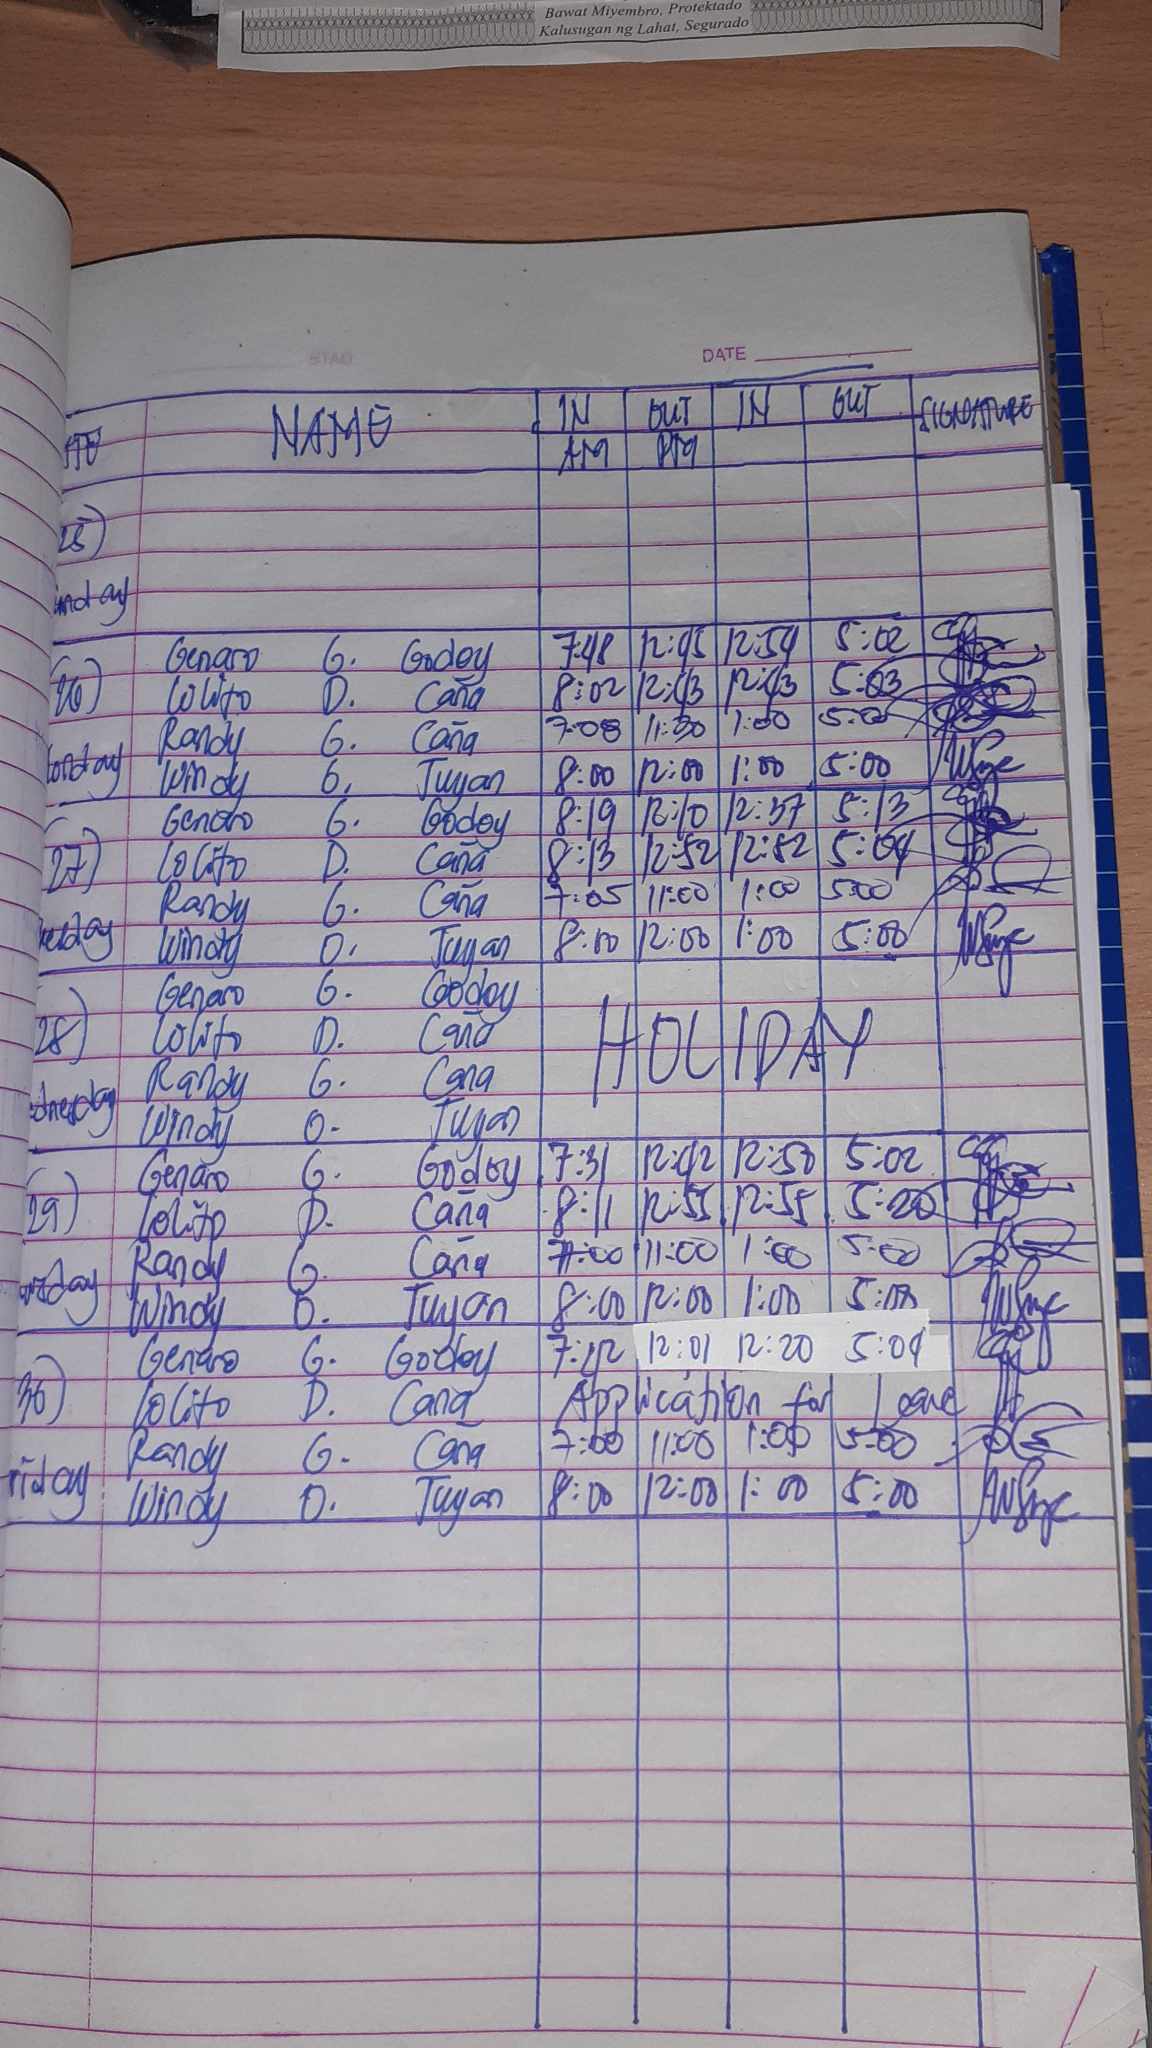 Bawat Miyembro, Protektado
Kalusugan ng Lahat, Segurado
DATE
NAME IN OUT IN OUT SIGNATURE
AM PM
25)
26)
Genaro G. Godoy 7:48 12:45 12:54 5:02
Lolito D. Caña 8:02 12:43 12:43 5:03
Randy G. Caña 7:08 11:30 1:00 5:00
Windy O. Tuyan 8:00 12:00 1:00 5:00
27)
Genaro G. Godoy 8:19 12:10 12:37 5:13
Lolito D. Caña 8:13 12:52 12:52 5:04
Randy G. Caña 7:05 11:00 1:00 5:00
Windy O. Tuyan 8:00 12:00 1:00 5:00
28)
Genaro G. Godoy
Lolito D. Caña HOLIDAY
Randy G. Cana
Windy O. Tuyan
29)
Genaro G. Godoy 7:31 12:42 12:50 5:02
Lolito D. Caña 8:11 12:55 12:55 5:20
Randy G. Caña 7:00 11:00 1:00 5:00
Windy O. Tuyan 8:00 12:00 1:00 5:00
30)
Genaro G. Godoy 7:42 12:01 12:20 5:04
Lolito D. Cana Application for Leave
Randy G. Cana 7:00 11:00 1:00 5:00
Windy O. Tuyan 8:00 12:00 1:00 5:00